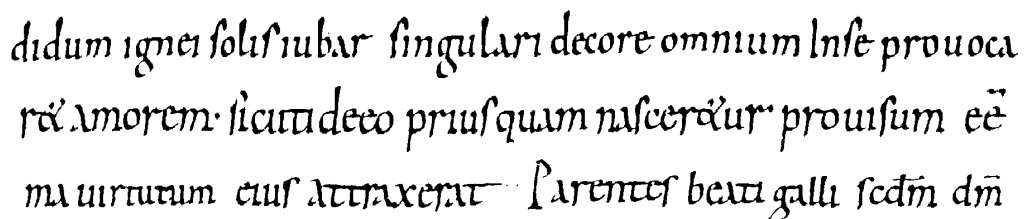 didum ignei solis iubar singulari decore omnium Inse prouoca
r& amorem· sicuti deeo priusquam nascer&ur prouisum eē
ma uirtutum eius attraxerat Parentes beati galli scd̄m dm̄